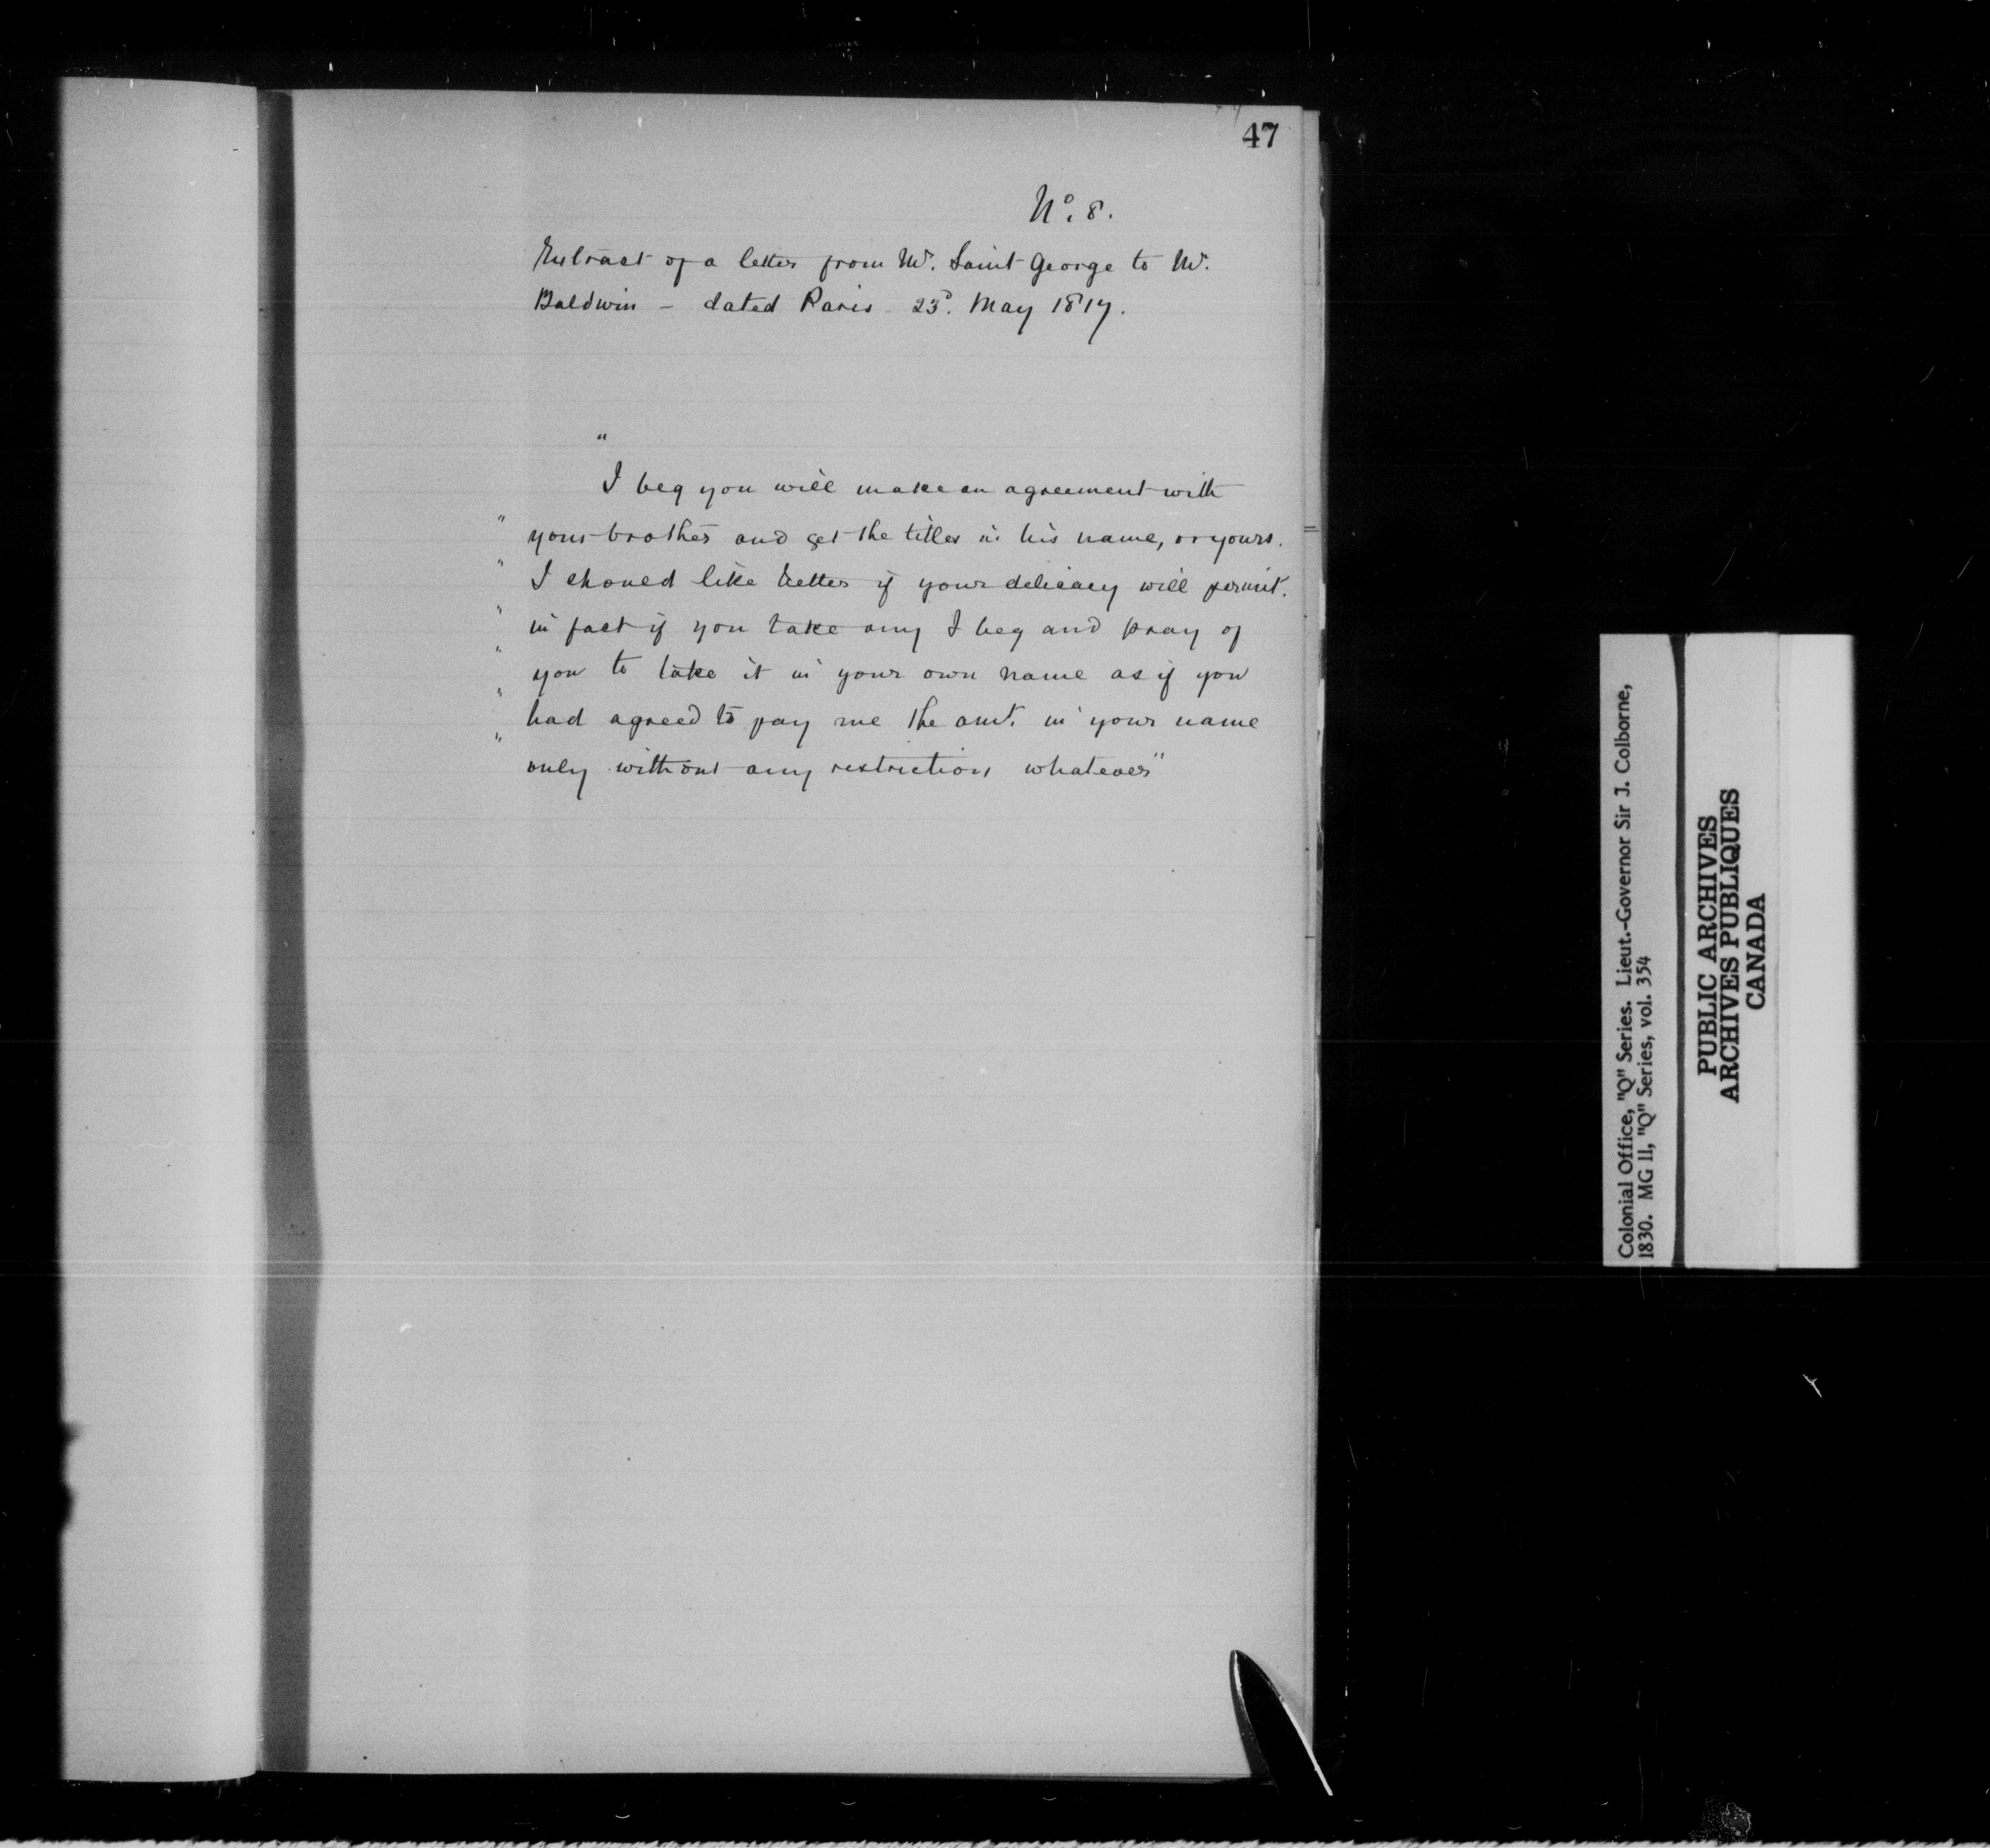 47
No. 8.
Extract of a letter from Mr. Saint George to Mr.
Baldwin - dated Paris 23d. May 1817.
"
I beg you will make an agreement with
" your brother and get the titles in his name, or yours.
" I should like better if your delicacy will permit.
" in fact if you take any I beg and pray of
" you to take it in your own name as if you
" had agreed to pay me the amt. in your name
" only without any restriction whatever"
Colonial Office, "Q" Series. Lieut.-Governor Sir J. Colborne,
1830. MG 11, "Q" Series, vol. 354
PUBLIC ARCHIVES
ARCHIVES PUBLIQUES
CANADA